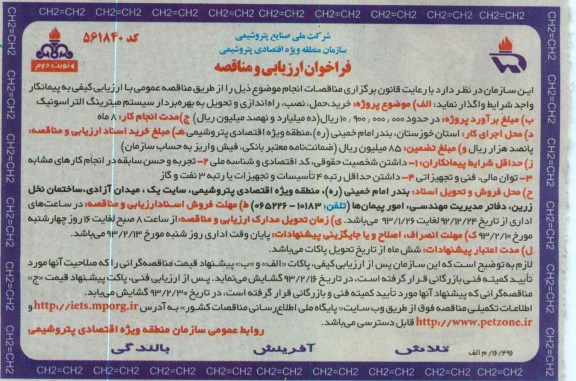 CH2=CH2 CH2=CH2 CH2=CH2 CH2=CH2 CH2=CH2 CH2=CH2 CH2=CH2 CH2=CH2
شرکت ملی صنایع پتروشیمی
سازمان منطقه ویژه اقتصادی پتروشیمی
کد ۵۶۱۸۴۰
نوبت دوم
فراخوان ارزیابی و مناقصه
این سازمان در نظر دارد با رعایت قانون برگزاری مناقصات انجام موضوع ذیل را از طریق مناقصه عمومی با ارزیابی کیفی به پیمانکار
واجد شرایط واگذار نماید: الف) موضوع پروژه: خرید، حمل، نصب، راه اندازی و تحویل به بهره بردار سیستم میترینگ التراسونیک
ب) مبلغ برآورد پروژه: در حدود ۱۰,۹۰۰,۰۰۰,۰۰۰ ریال (ده میلیارد و نهصد میلیون ریال) ج) مدت انجام کار: ۸ ماه
د) محل اجرای کار: استان خوزستان، بندر امام خمینی (ره)، منطقه ویژه اقتصادی پتروشیمی هـ) مبلغ خرید اسناد ارزیابی و مناقصه:
پانصد هزار ریال و) مبلغ تضمین: ۸۵ میلیون ریال (ضمانت نامه معتبر بانکی، فیش واریز به حساب سازمان)
ز) حداقل شرایط پیمانکاران: ۱- داشتن شخصیت حقوقی، کد اقتصادی و شناسه ملی ۲- تجربه و حسن سابقه در انجام کارهای مشابه
۳- توان مالی، فنی و تجهیزاتی ۴- داشتن حداقل رتبه ۴ تأسیسات و تجهیزات یا رتبه ۳ نفت و گاز
ح) محل فروش و تحویل اسناد: بندر امام خمینی (ره)، منطقه ویژه اقتصادی پتروشیمی، سایت یک، میدان آزادی، ساختمان نخل
زرین، دفاتر مدیریت مهندسی، امور پیمان‌ها (تلفن: ۱۰۱۸۳-۰۶۵۲۲۶) ط) مهلت فروش اسناد ارزیابی و مناقصه: در ساعت‌های
اداری از تاریخ ۹۲/۱۲/۲۴ لغایت ۹۳/۱/۲۶ می‌باشد. ی) زمان تحویل مدارک ارزیابی و مناقصه: از ساعت ۸ صبح لغایت ۱۶ روز چهارشنبه
مورخ ۹۳/۲/۱۰ ک) مهلت انصراف، اصلاح و یا جایگزینی پیشنهادات: پایان وقت اداری روز شنبه مورخ ۹۳/۲/۱۳ می‌باشد.
ل) مدت اعتبار پیشنهادات: شش ماه از تاریخ تحویل پاکات می‌باشد.
لازم به توضیح است که این سازمان پس از ارزیابی کیفی، پاکات «الف» و «ب» پیشنهاد قیمت مناقصه گرانی را که صلاحیت آنها مورد
تأیید کمیته فنی و بازرگانی قرار گرفته است، در تاریخ ۹۳/۲/۱۶ گشایش می‌نماید. پس از ارزیابی فنی، پاکت پیشنهاد قیمت «ج»
مناقصه گرانی که پیشنهاد آنها مورد تأیید کمیته فنی و بازرگانی قرار گرفته است، در تاریخ ۹۳/۲/۳۰ گشایش می‌یابد.
اطلاعات تکمیلی مناقصه فوق از طریق وب سایت «پایگاه ملی اطلاع رسانی مناقصات کشور» به آدرس http://iets.mporg.ir و
http://www.petzone.ir قابل دسترسی می‌باشد.
روابط عمومی سازمان منطقه ویژه اقتصادی پتروشیمی
تلاش آفرینش بالندگی
CH2=CH2 CH2=CH2 CH2=CH2 CH2=CH2 CH2=CH2 CH2=CH2 CH2=CH2 CH2=CH2